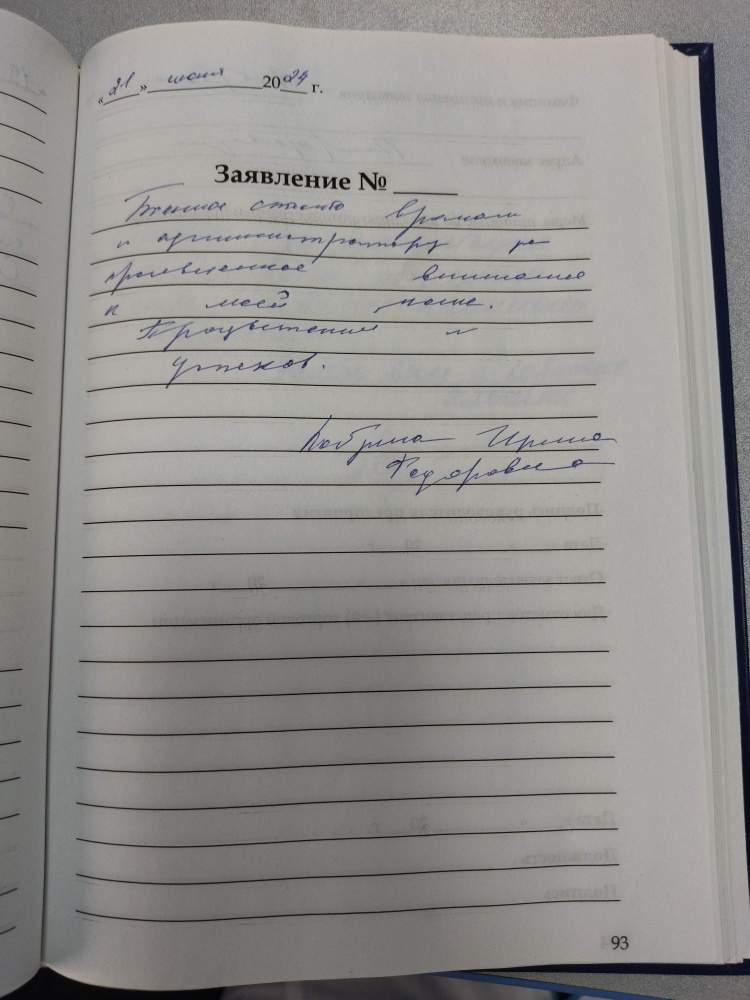 «21» июня 2024 г.
Заявление №
Большое спасибо врачам
и администратору за
проявленное внимание
к моей маме.
Процветания и
успехов.
Ирина
Федоровна
93